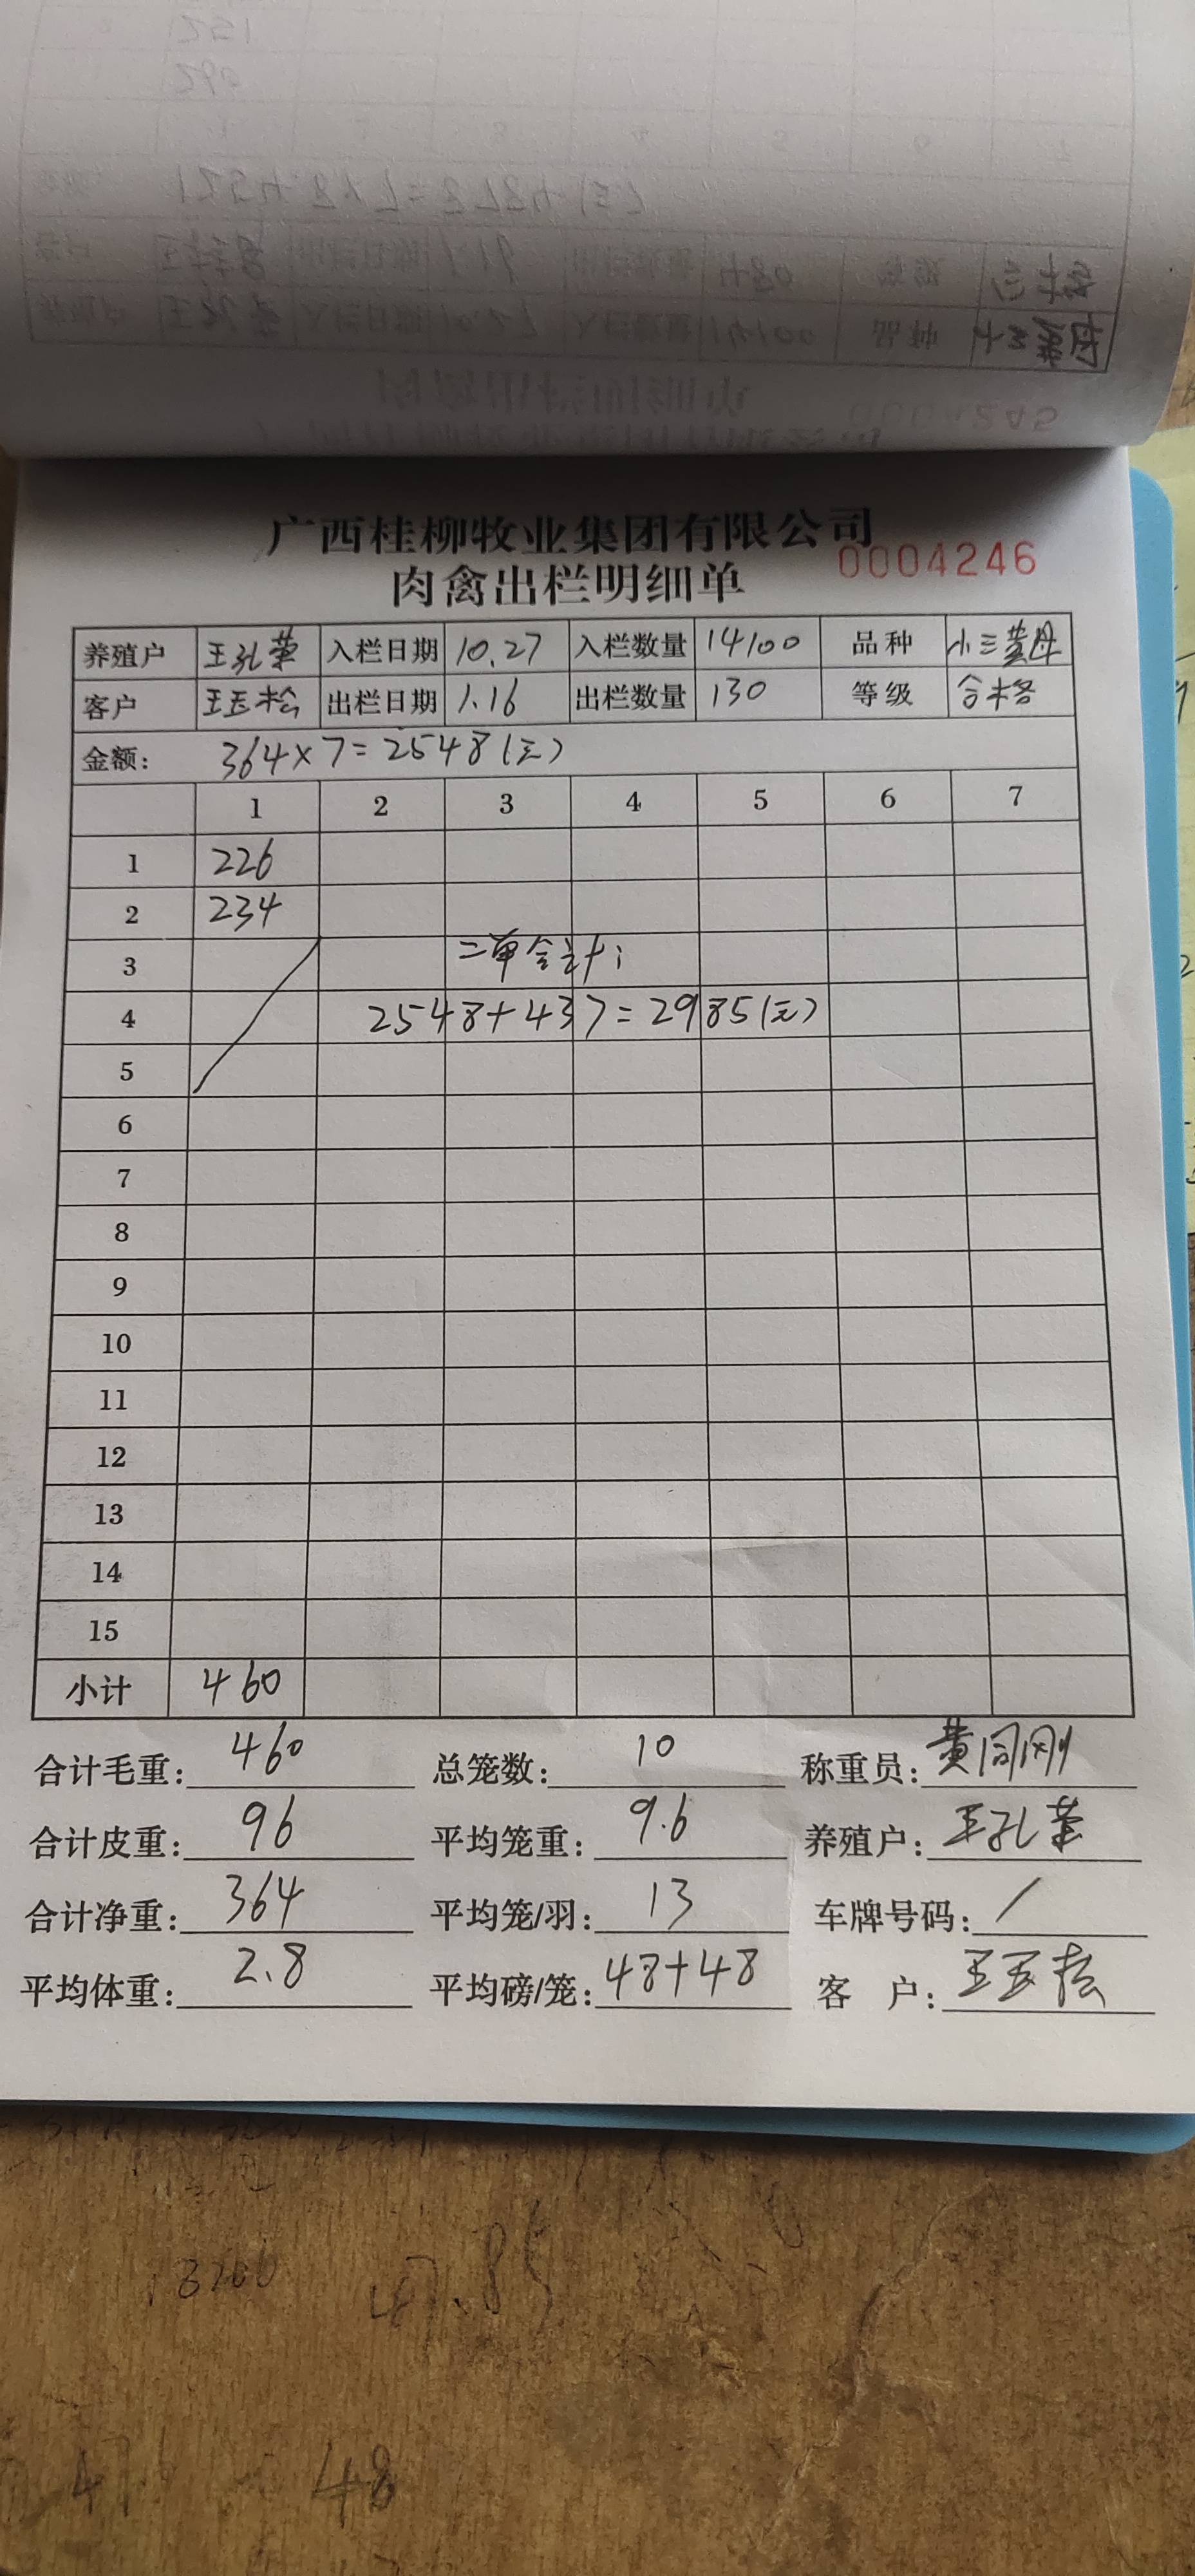 广西桂柳牧业集团有限公司
肉禽出栏明细单 0004246
养殖户 王孔荣 入栏日期 10.27 入栏数量 14100 品种 小三黄母
客户 王玉松 出栏日期 1.16 出栏数量 130 等级 合格
金额: 364×7=2548(元)
1 2 3 4 5 6 7
1 226
2 234
3 二单合计:
4 2548+437=2985(元)
5
6
7
8
9
10
11
12
13
14
15
小计 460
合计毛重: 460 总笼数: 10 称重员: 黄同刚
合计皮重: 96 平均笼重: 9.6 养殖户: 王孔荣
合计净重: 364 平均笼/羽: 13 车牌号码: /
平均体重: 2.8 平均磅/笼: 48+48 客 户: 王玉松
47.85
48